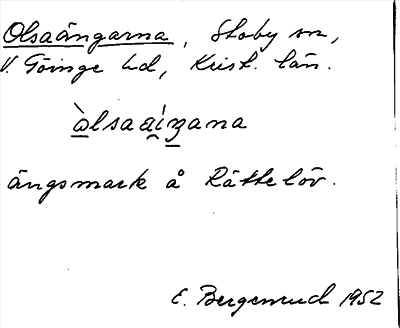 Olsaängarna, Stoby sn,
V. Göinge hd, Krist. län.
òlsaaíŋana
ängsmark å Rättelöv.
E. Bergenrud 1952